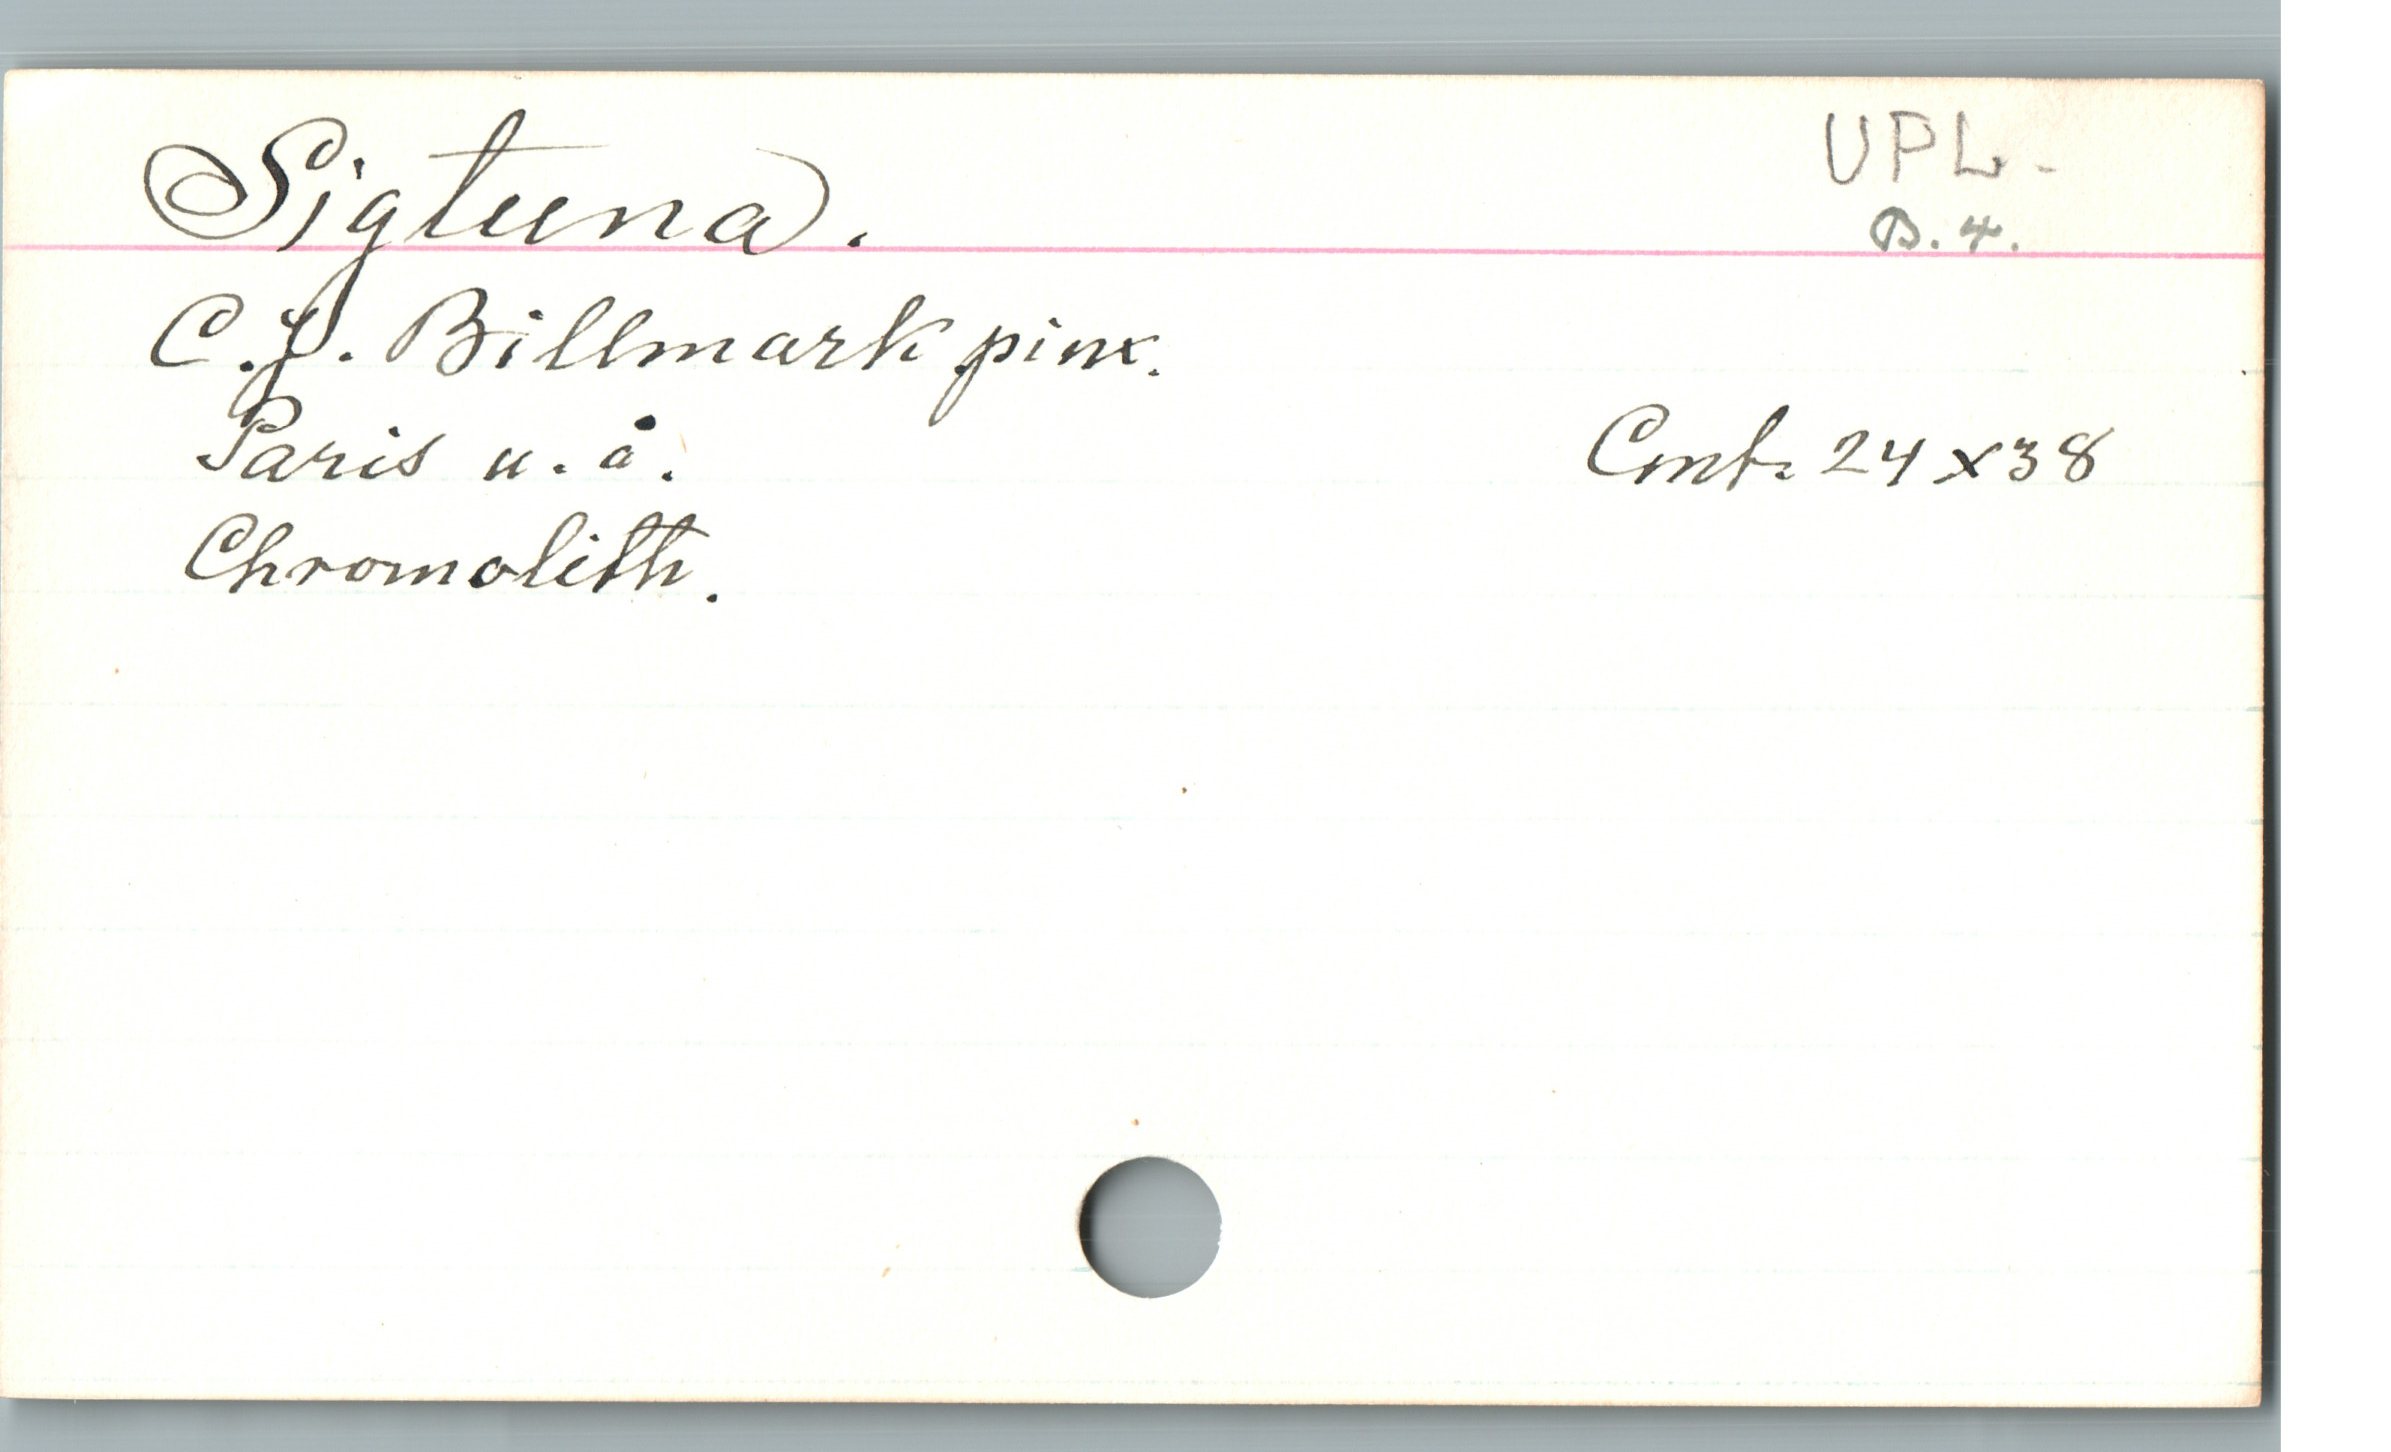 Sigtuna.
UPL-
B. 4.
C. J. Billmark pinx.
Paris u. å.
Cmt. 24 x 38
Chromolith.